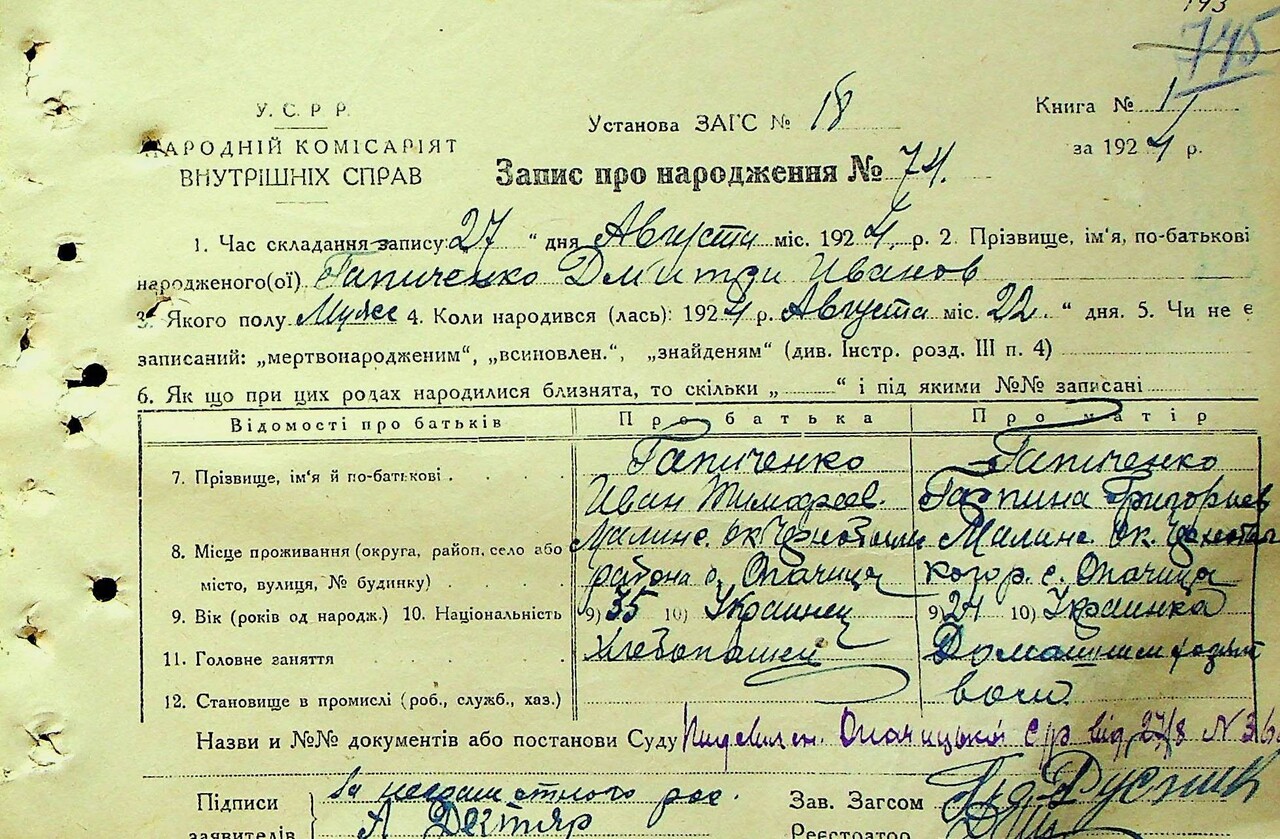 193
745
У. С. Р. Р.
НАРОДНІЙ КОМІСАРІЯТ
ВНУТРІШНІХ СПРАВ
Установа ЗАГС № 18
Книга № 1
за 1924 р.
Запис про народження № 74.
1. Час складання запису: 27 " дня Августа міс. 1924 р. 2. Прізвище, ім'я, по-батькові
народженого(ої) Гапиченко Дмитри Иванов
3. Якого полу Мужс 4. Коли народився (лась): 1924 р. Августа міс. 22. " дня. 5. Чи не є
записаний: „мертвонародженим", „всиновлен.", „знайденям" (див. Інстр. розд. III п. 4)
6. Як що при цих родах народилися близнята, то скільки „ " і під якими №№ записані
Відомості про батьків Про батька Про матір
7. Прізвище, ім'я й по-батькові Гапиченко Гапиченко
Иван Тимофеев. Гапина Григориев
8. Місце проживання (округа, район, село або Малинс. ок. Малинс. ок.
місто, вулиця, № будинку) района с. Опачица р. с. Опачица
9. Вік (років од народж.) 10. Національність 9) 35 10) Украинец 9) 24 10) Украинка
11. Головне заняття Хлебопашец Домашнем
12. Становище в промислі (роб., служб., хаз.)
Назви и №№ документів або постанови Суду Опачицької с/р від 27/8 N 36
Підписи За неграмотного рос.
заявителів А Дегтяр
Зав. Загсом
Реєстратор